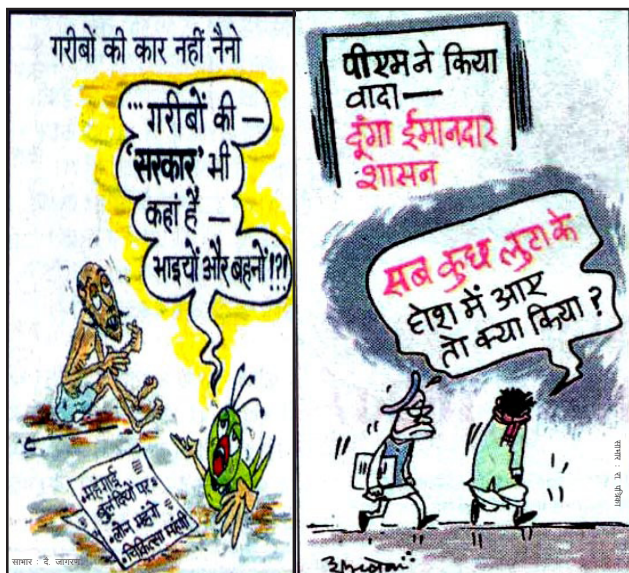 गरीबों की कार नहीं नैनो
...गरीबों की –
'सरकार' भी
कहां है –
भाइयों और बहनों !?!
महंगाई
बुलंदियों पर
लोन महंगे
चिकित्सा महंगी
साभार : दै. जागरण
पीएम ने किया
वादा —
दूंगा ईमानदार
शासन
सब कुछ लुटा के
होश में आए
तो क्या किया ?
साभार : रा. पत्रिका